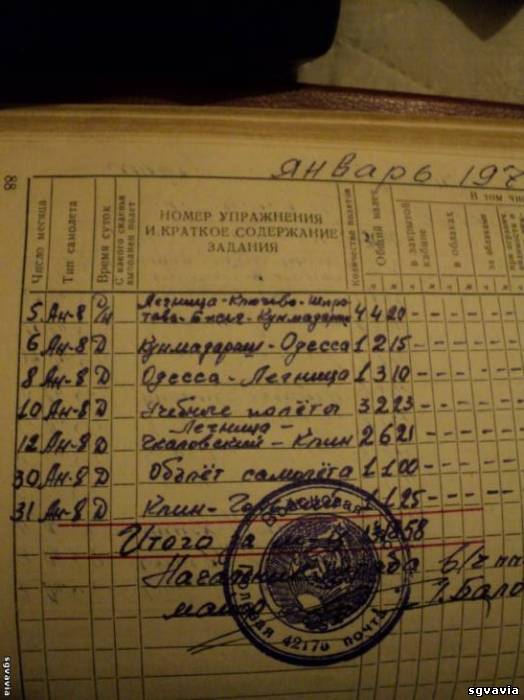 88
январь 197
Число месяца
Тип самолета
Время суток
С какого сиденья выполнен полет
НОМЕР УПРАЖНЕНИЯ
И КРАТКОЕ СОДЕРЖАНИЕ
ЗАДАНИЯ
Количество полетов
Общий налет
в закрытой кабине
в облаках
за облаками
В том чис
5 Ан-8 Д/Н Легница-Ключево-Шпро
тава-Бжег-Кунмадараш 4 4 20 - - - -
6 Ан-8 Д Кунмадараш-Одесса 1 2 15 - - - -
8 Ан-8 Д Одесса-Легница 1 3 10 - - - -
10 Ан-8 Д Учебные полёты 3 2 23 - - - -
Легница-
12 Ан-8 Д Чкаловский-Клин 2 6 21 - - - -
30 Ан-8 Д Облёт самолёта 1 1 00 - - - -
31 Ан-8 Д Клин- 1 1 25 - - - -
Итого за
Начальник штаба в/ч п
майор
ПОЛЕВАЯ ПОЧТА
42170
sgvavia
sgvavia